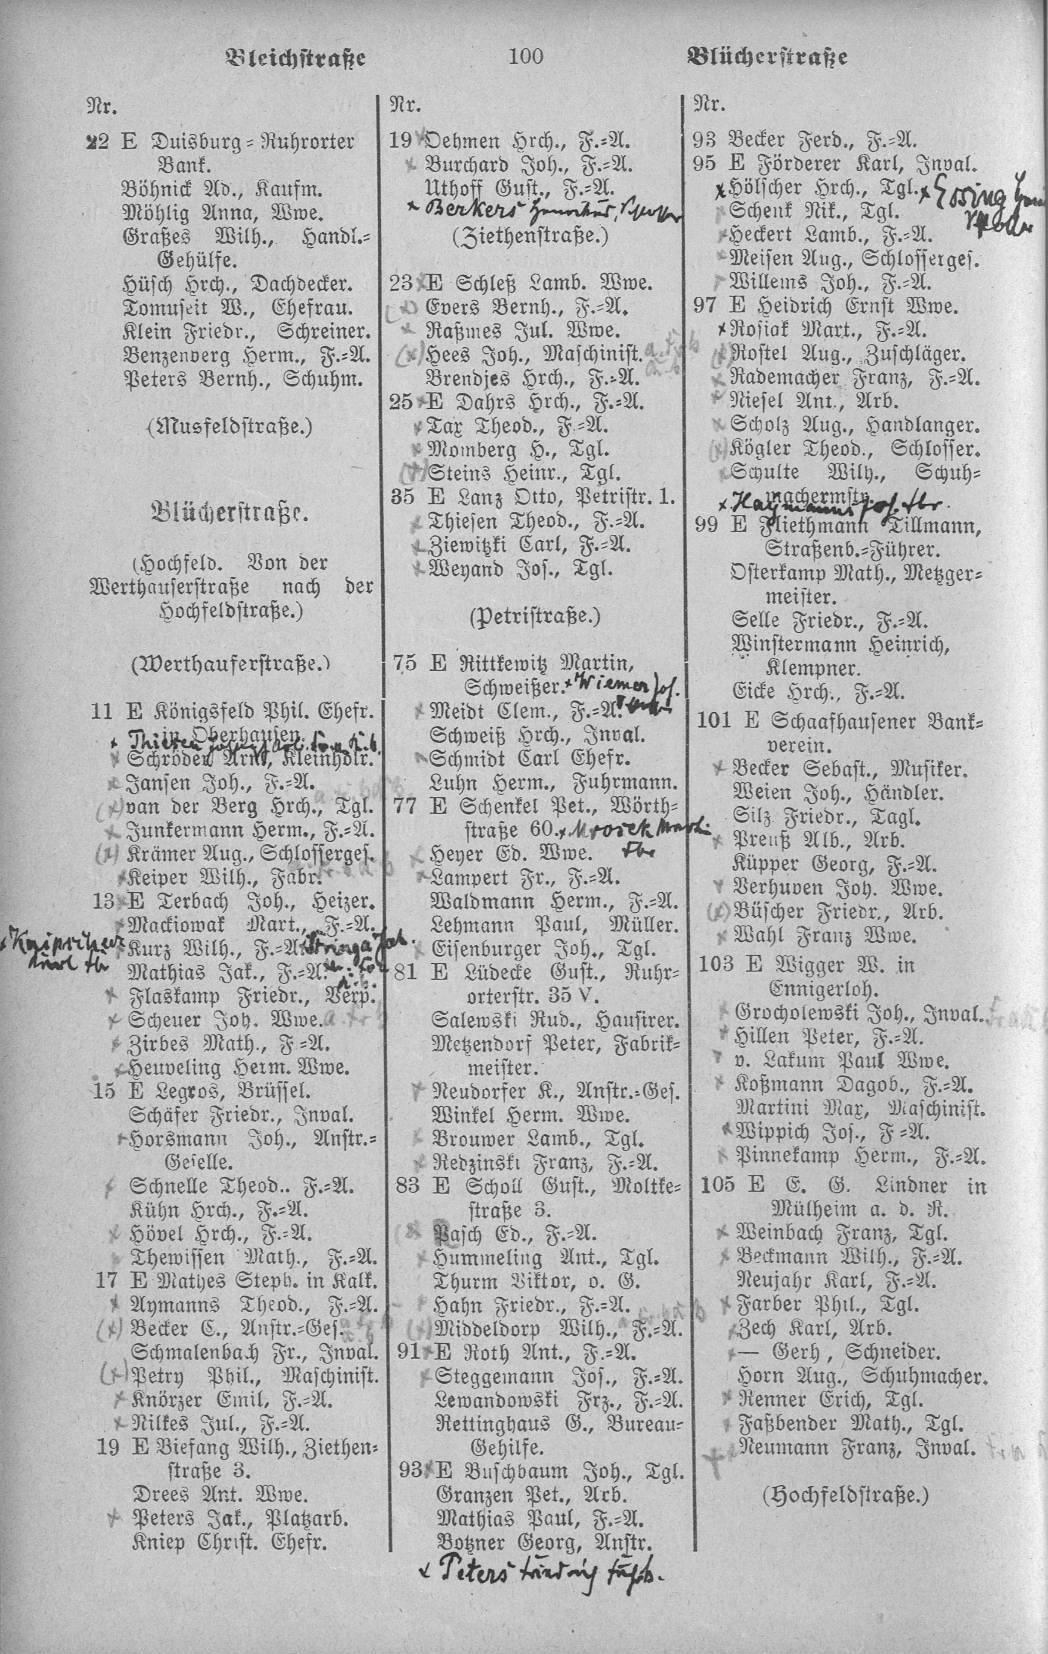 Bleichstraße 100 Blücherstraße
Nr.
22 E Duisburg-Ruhrorter
Bank.
Böhnick Ad., Kaufm.
Möhlig Anna, Wwe.
Graßes Wilh., Handl.-
Gehülfe.
Hüsch Hrch., Dachdecker.
Tomuseit W., Ehefrau.
Klein Friedr., Schreiner.
Benzenberg Herm., F.-A.
Peters Bernh., Schuhm.
(Musfeldstraße.)
Blücherstraße.
(Hochfeld. Von der
Werthauserstraße nach der
Hochfeldstraße.)
(Werthauserstraße.)
11 E Königsfeld Phil. Ehefr.
in Oberhausen.
× Thiesen
Schröder Arn., Kleinhdlr.
Jansen Joh., F.-A.
(×) van der Berg Hrch., Tgl.
Junkermann Herm., F.-A.
(×) Krämer Aug., Schlosserges.
Keiper Wilh., Fabr.
13 E Terbach Joh., Heizer.
Mackiowak Mart., F.-A.
Kurz Wilh., F.-A.
Mathias Jak., F.-A.
Flaskamp Friedr., Verp.
Scheuer Joh. Wwe.
Zirbes Math., F.-A.
Heuveling Herm. Wwe.
15 E Legros, Brüssel.
Schäfer Friedr., Inval.
Horsmann Joh., Anstr.-
Geselle.
Schnelle Theod., F.-A.
Kühn Hrch., F.-A.
Hövel Hrch., F.-A.
Thewissen Math., F.-A.
17 E Mathes Steph. in Kalk.
Aymanns Theod., F.-A.
(×) Becker C., Anstr.-Ges.
Schmalenbach Fr., Inval.
(×) Petry Phil., Maschinist.
Knörzer Emil, F.-A.
Nilkes Jul., F.-A.
19 E Biefang Wilh., Ziethen-
straße 3.
Drees Ant. Wwe.
Peters Jak., Platzarb.
Kniep Christ. Ehefr.
Nr.
19 Oehmen Hrch., F.-A.
Burchard Joh., F.-A.
Uthoff Gust., F.-A.
× Berkers
(Ziethenstraße.)
23 E Schleß Lamb. Wwe.
Evers Bernh., F.-A.
Raßmes Jul. Wwe.
(×) Hees Joh., Maschinist.
Brendjes Hrch., F.-A.
25 E Dahrs Hrch., F.-A.
Tax Theod., F.-A.
Momberg H., Tgl.
(×) Steins Heinr., Tgl.
35 E Lanz Otto, Petristr. 1.
Thiesen Theod., F.-A.
Ziewitzki Carl, F.-A.
Weyand Jos., Tgl.
(Petristraße.)
75 E Rittkewitz Martin,
Schweißer. × Wiemer Joh.
Meidt Clem., F.-A.
Schweiß Hrch., Inval.
Schmidt Carl Ehefr.
Luhn Herm., Fuhrmann.
77 E Schenkel Pet., Wörth-
straße 60. × Mrosek
Heyer Ed. Wwe.
Lampert Fr., F.-A.
Waldmann Herm., F.-A.
Lehmann Paul, Müller.
Eisenburger Joh., Tgl.
81 E Lüdecke Gust., Ruhr-
orterstr. 35 V.
Salewski Rud., Hausirer.
Metzendorf Peter, Fabrik-
meister.
Neudorfer K., Anstr.-Ges.
Winkel Herm. Wwe.
Brouwer Lamb., Tgl.
Redzinski Franz, F.-A.
83 E Scholl Gust., Moltke-
straße 3.
Pasch Ed., F.-A.
Hummeling Ant., Tgl.
Thurm Viktor, o. G.
Hahn Friedr., F.-A.
(×) Middeldorp Wilh., F.-A.
91 E Roth Ant., F.-A.
Steggemann Jos., F.-A.
Lewandowski Frz., F.-A.
Rettinghaus G., Bureau-
Gehilfe.
93 E Buschbaum Joh., Tgl.
Granzen Pet., Arb.
Mathias Paul, F.-A.
Botzner Georg, Anstr.
× Peters
Nr.
93 Becker Ferd., F.-A.
95 E Förderer Karl, Inval.
× Hölscher Hrch., Tgl. × Essing
Schenk Nik., Tgl.
Heckert Lamb., F.-A.
Meisen Aug., Schlosserges.
Willems Joh., F.-A.
97 E Heidrich Ernst Wwe.
× Rosiak Mart., F.-A.
(×) Rostel Aug., Zuschläger.
Rademacher Franz, F.-A.
Niesel Ant., Arb.
Scholz Aug., Handlanger.
(×) Kögler Theod., Schlosser.
Schulte Wilh., Schuh-
machermstr.
99 E Fliethmann Tillmann,
Straßenb.-Führer.
Osterkamp Math., Metzger-
meister.
Selle Friedr., F.-A.
Winstermann Heinrich,
Klempner.
Eicke Hrch., F.-A.
101 E Schaafhausener Bank-
verein.
Becker Sebast., Musiker.
Weien Joh., Händler.
Silz Friedr., Tagl.
Preuß Alb., Arb.
Küpper Georg, F.-A.
Verhuven Joh. Wwe.
(×) Büscher Friedr., Arb.
Wahl Franz Wwe.
103 E Wigger W. in
Ennigerloh.
Grocholewski Joh., Inval.
Hillen Peter, F.-A.
v. Lakum Paul Wwe.
Koßmann Dagob., F.-A.
Martini Max, Maschinist.
Wippich Jos., F.-A.
Pinnekamp Herm., F.-A.
105 E E. G. Lindner in
Mülheim a. d. R.
Weinbach Franz, Tgl.
Beckmann Wilh., F.-A.
Neujahr Karl, F.-A.
Farber Phil., Tgl.
Zech Karl, Arb.
— Gerh., Schneider.
Horn Aug., Schuhmacher.
Renner Erich, Tgl.
Faßbender Math., Tgl.
Neumann Franz, Inval.
(Hochfeldstraße.)